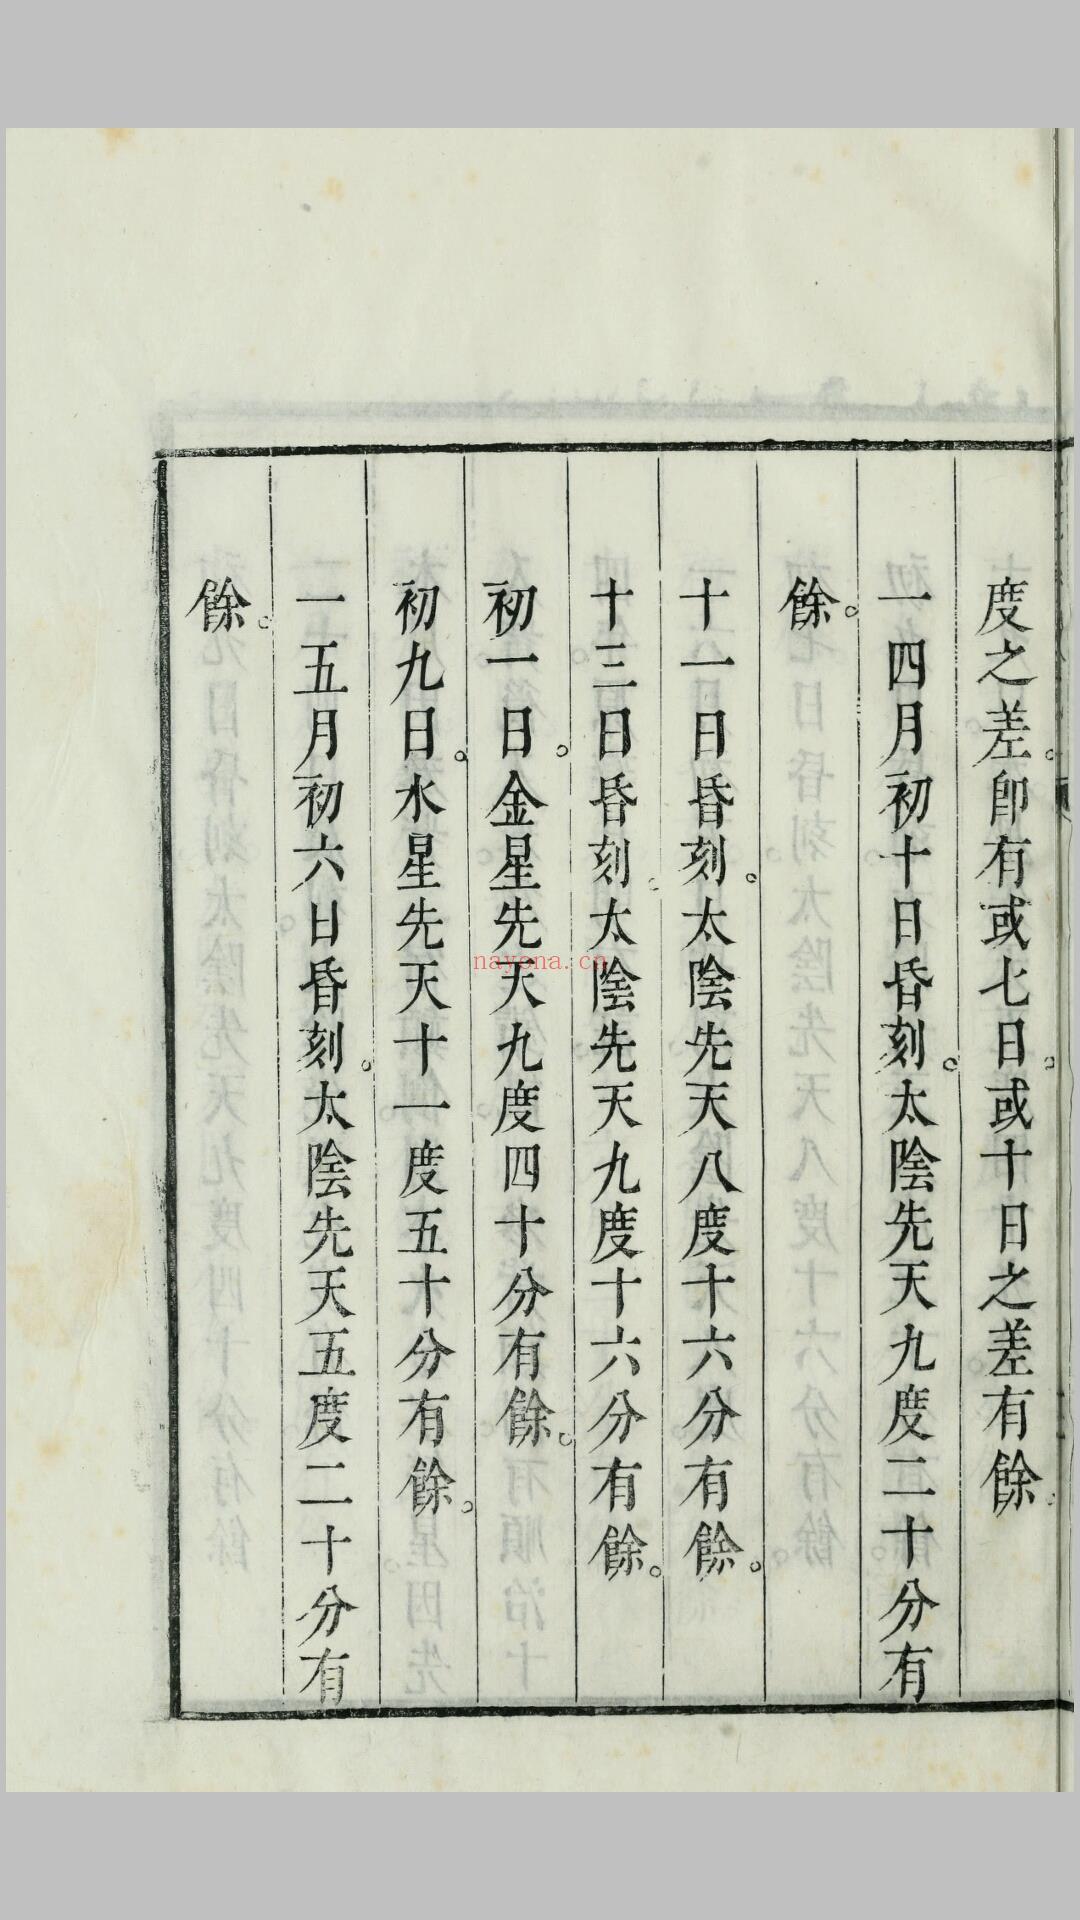 度之差。卽有或七日。或十日之差有餘。
一四月初十日昏刻。太陰先天九度二十分有
餘。
十一日昏刻。太陰先天八度十六分有餘。
十三日昏刻。太陰先天九度十六分有餘。
初一日。金星先天九度四十分有餘。
初九日。水星先天十一度五十分有餘。
一五月初六日昏刻。太陰先天五度二十分有
餘。
nayona.cn